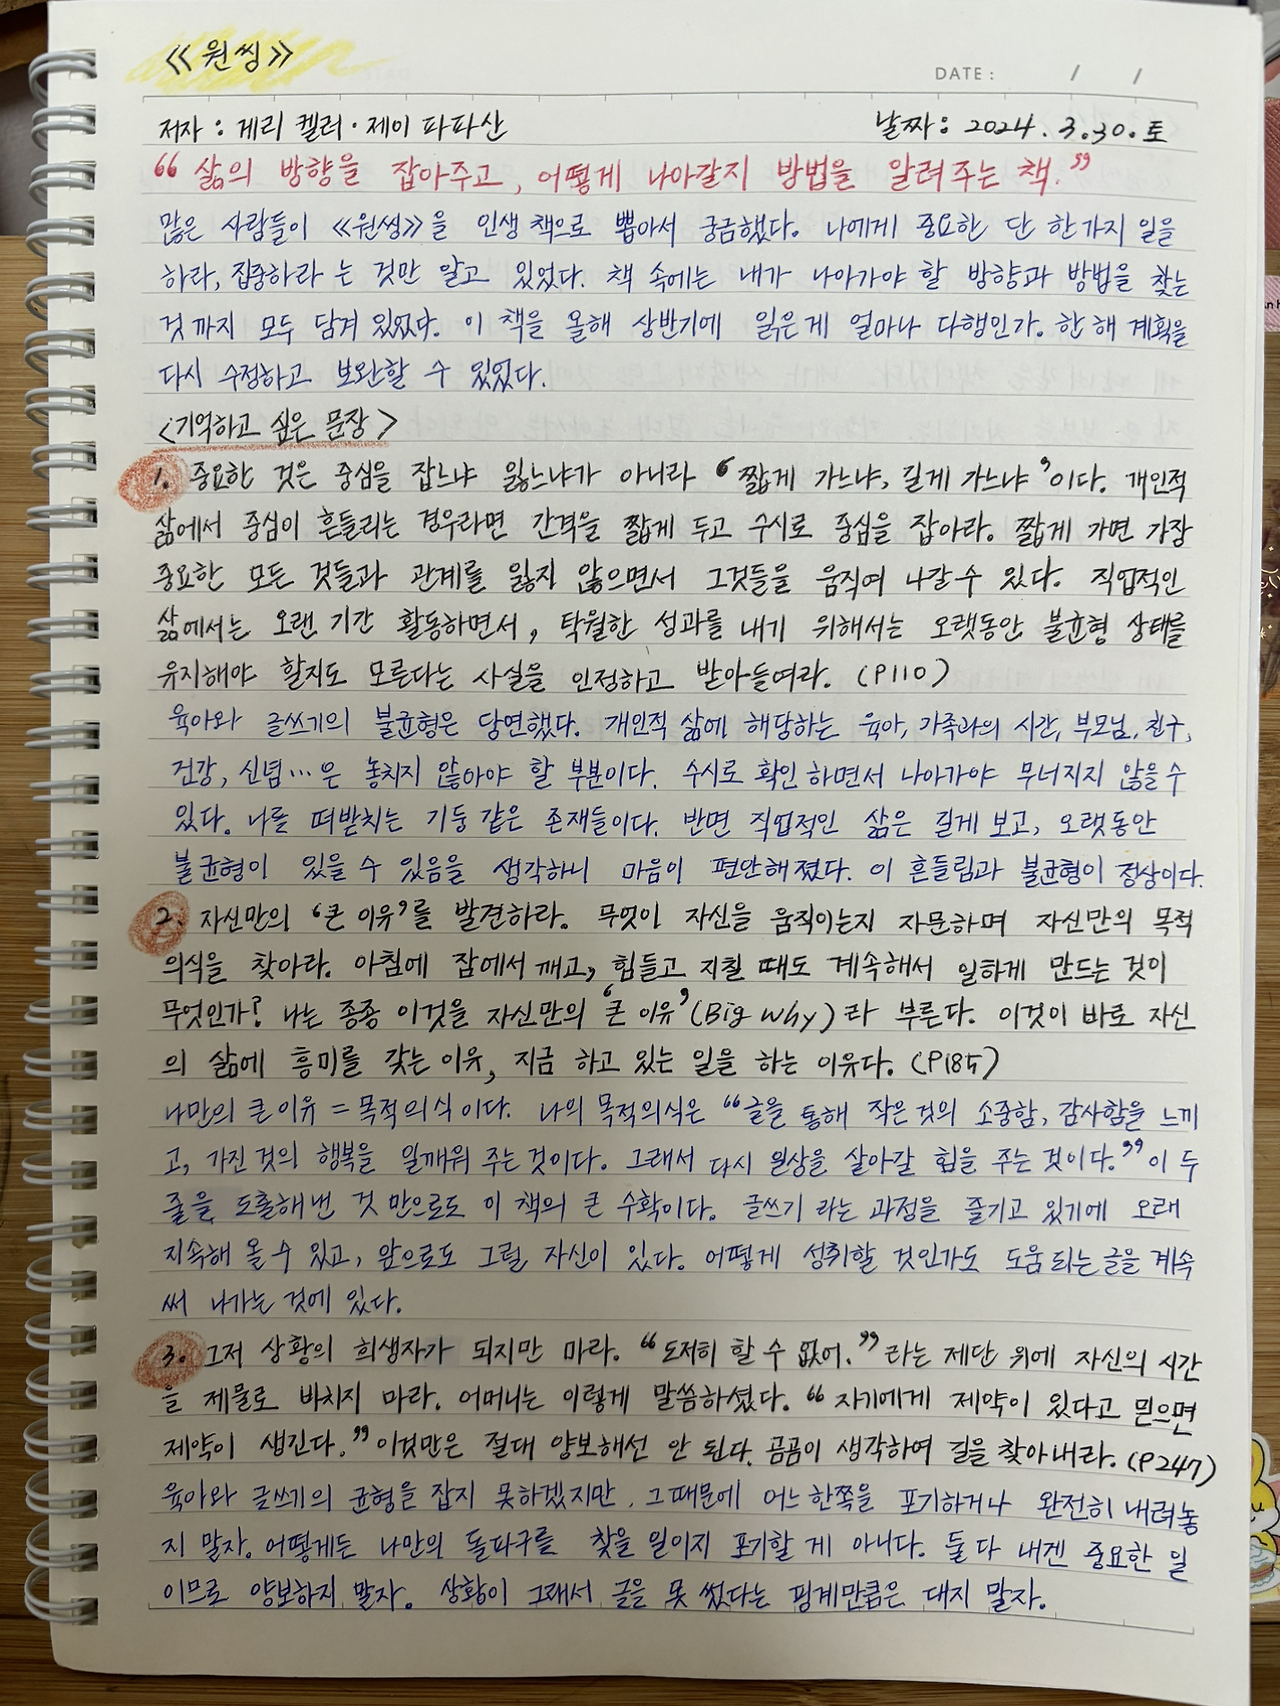 《원씽》
DATE : / /
저자 : 게리 켈러·제이 파파산 날짜: 2024. 3.30.토
“삶의 방향을 잡아주고, 어떻게 나아갈지 방법을 알려주는 책.”
많은 사람들이 《원씽》을 인생 책으로 뽑아서 궁금했다. 나에게 중요한 단 한가지 일을
하라, 집중하라 는 것만 알고 있었다. 책 속에는 내가 나아가야 할 방향과 방법을 찾는
것 까지 모두 담겨 있었다. 이 책을 올해 상반기에 읽은게 얼마나 다행인가. 한 해 계획을
다시 수정하고 보완할 수 있었다.
<기억하고 싶은 문장>
1. 중요한 것은 중심을 잡느냐 잃느냐가 아니라 ‘짧게 가느냐, 길게 가느냐’이다. 개인적
삶에서 중심이 흔들리는 경우라면 간격을 짧게 두고 수시로 중심을 잡아라. 짧게 가면 가장
중요한 모든 것들과 관계를 잃지 않으면서 그것들을 움직여 나갈 수 있다. 직업적인
삶에서는 오랜 기간 활동하면서, 탁월한 성과를 내기 위해서는 오랫동안 불균형 상태를
유지해야 할지도 모른다는 사실을 인정하고 받아들여라. (P110)
육아와 글쓰기의 불균형은 당연했다. 개인적 삶에 해당하는 육아, 가족과의 시간, 부모님, 친구,
건강, 신념…은 놓치지 않아야 할 부분이다. 수시로 확인 하면서 나아가야 무너지지 않을 수
있다. 나를 떠받치는 기둥 같은 존재들이다. 반면 직업적인 삶은 길게 보고, 오랫동안
불균형이 있을 수 있음을 생각하니 마음이 편안해졌다. 이 흔들림과 불균형이 정상이다.
2. 자신만의 ‘큰 이유’를 발견하라. 무엇이 자신을 움직이는지 자문하며 자신만의 목적
의식을 찾아라. 아침에 잠에서 깨고, 힘들고 지칠 때도 계속해서 일하게 만드는 것이
무엇인가? 나는 종종 이것을 자신만의 ‘큰 이유’(Big Why)라 부른다. 이것이 바로 자신
의 삶에 흥미를 갖는 이유, 지금 하고 있는 일을 하는 이유다. (P185)
나만의 큰 이유 = 목적의식 이다. 나의 목적의식은 “글을 통해 작은 것의 소중함, 감사함을 느끼
고, 가진 것의 행복을 일깨워 주는 것이다. 그래서 다시 일상을 살아갈 힘을 주는 것이다.” 이 두
줄을 도출해낸 것 만으로도 이 책의 큰 수확이다. 글쓰기 라는 과정을 즐기고 있기에 오래
지속해 올 수 있고, 앞으로도 그럴 자신이 있다. 어떻게 성취할 것인가도 도움 되는 글을 계속
써 나가는 것에 있다.
3. 그저 상황의 희생자가 되지만 마라. “도저히 할 수 없어.”라는 제단 위에 자신의 시간
을 제물로 바치지 마라. 어머니는 이렇게 말씀하셨다. “자기에게 제약이 있다고 믿으면
제약이 생긴다.” 이것만은 절대 양보해선 안 된다. 곰곰이 생각하여 길을 찾아내라. (P247)
육아와 글쓰기의 균형을 잡지 못하겠지만, 그 때문에 어느 한쪽을 포기하거나 완전히 내려놓
지 말자. 어떻게든 나만의 돌파구를 찾을 일이지 포기할 게 아니다. 둘 다 내겐 중요한 일
이므로 양보하지 말자. 상황이 그래서 글을 못 썼다는 핑계만큼은 대지 말자.